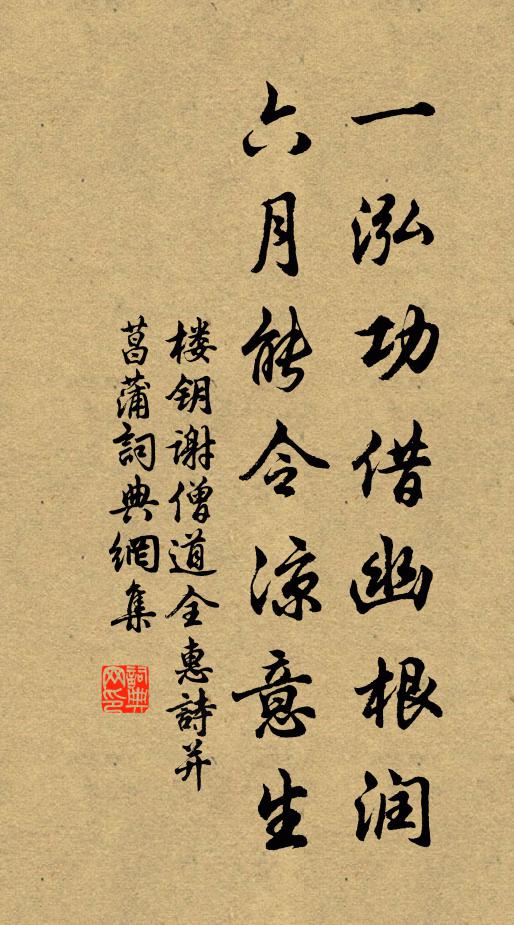 一泓功借幽根润
六月能令凉意生
楼钥谢僧道全惠詩并
菖蒲詞典網集
詞典
网印